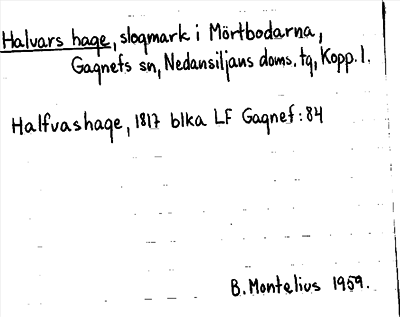 Halvars hage, slogmark i Mörtbodarna,
Gagnefs sn, Nedansiljans doms. tg, Kopp. l.
Halfvashage, 1817 blka LF Gagnef: 84
B. Montelius 1959.